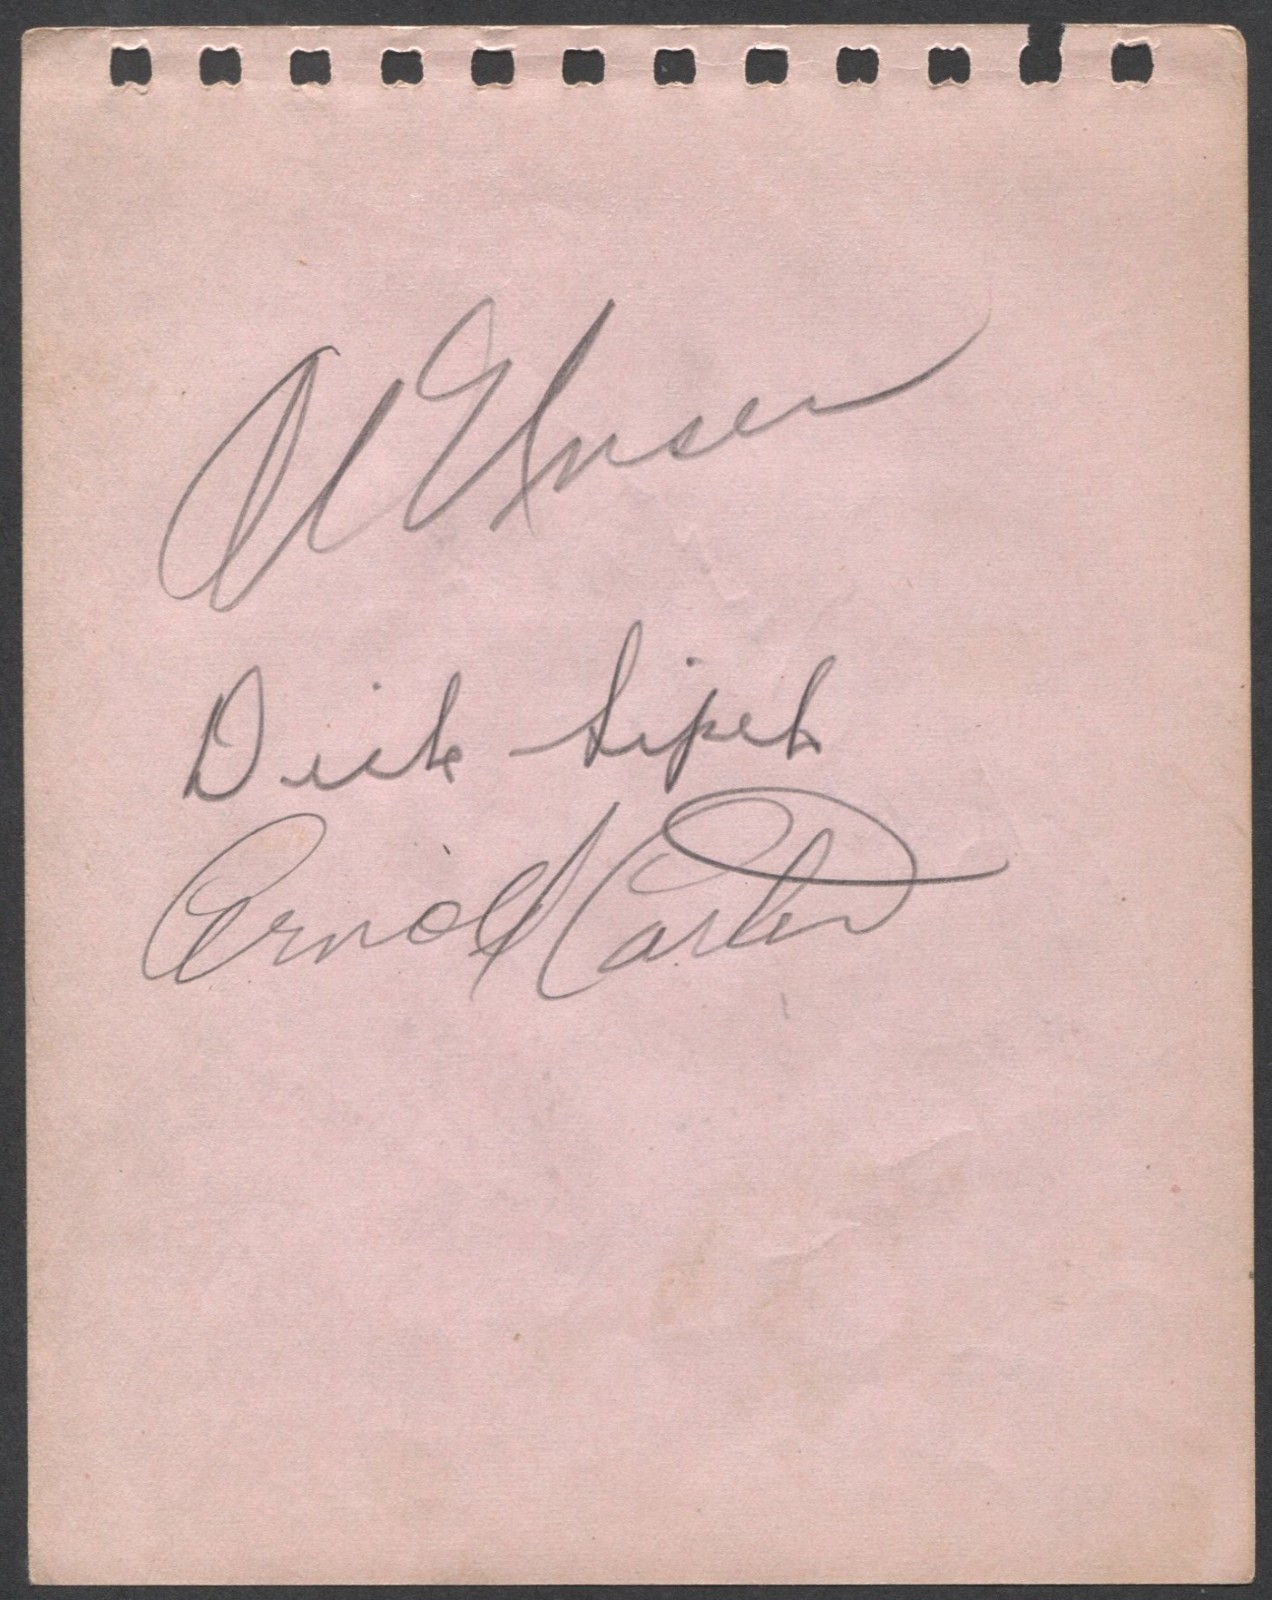 Al Unser
Dick Sipek
Arnold Carter